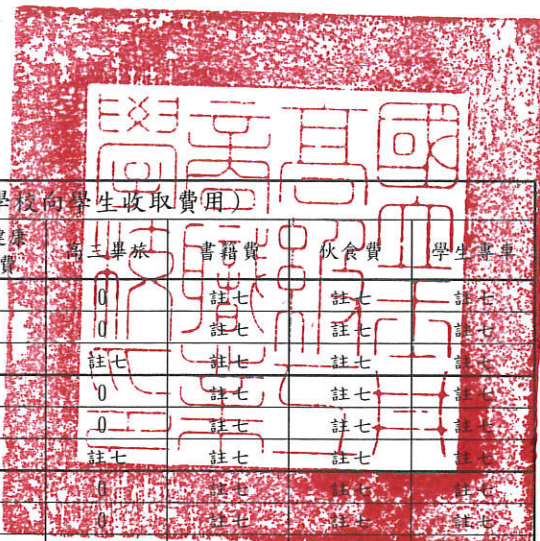 學校向學生收取費用）
健康
費 高三畢旅 書籍費 伙食費 學生專車
0 註七 註七 註七
0 註七 註七 註七
註七 註七 註七 註七
0 註七 註七 註七
0 註七 註七 註七
註七 註七 註七 註七
0 註七 註七 註七
0 註七 註七 註七